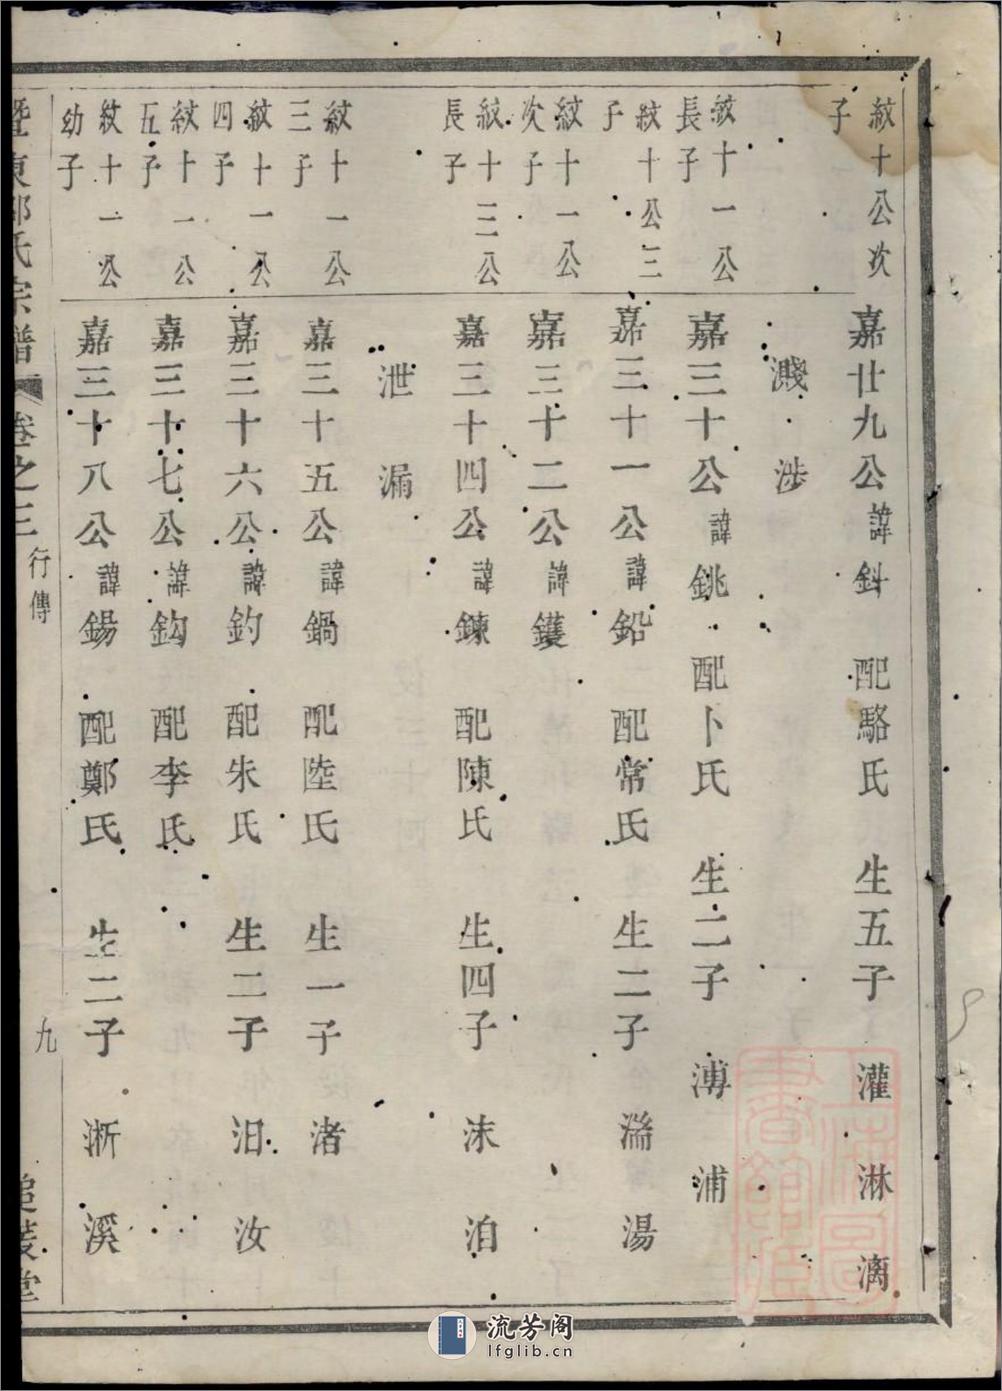 紋十公次子
嘉廿九公諱鈄 配駱氏 生五子 灌 淋 漓
濺 涉
紋十一公長子
嘉三十公諱銚 配卜氏 生二子 溥 浦
紋十公三子
嘉三十一公諱鉛 配常氏 生二子 湍 湯
紋十一公次子
嘉三十二公諱鑊
紋十三公長子
嘉三十四公諱鍊 配陳氏 生四子 沫 洎
泄 漏
紋十一公三子
嘉三十五公諱鍋 配陸氏 生一子 渚
紋十一公四子
嘉三十六公諱釣 配朱氏 生二子 汨 汝
紋十一公五子
嘉三十七公諱鈎 配李氏
紋十一公幼子
嘉三十八公諱鍚 配鄭氏 生二子 淅 溪
暨東 氏宗譜 卷之三 行傳 九 追 堂
流芳阁
lfglib.cn